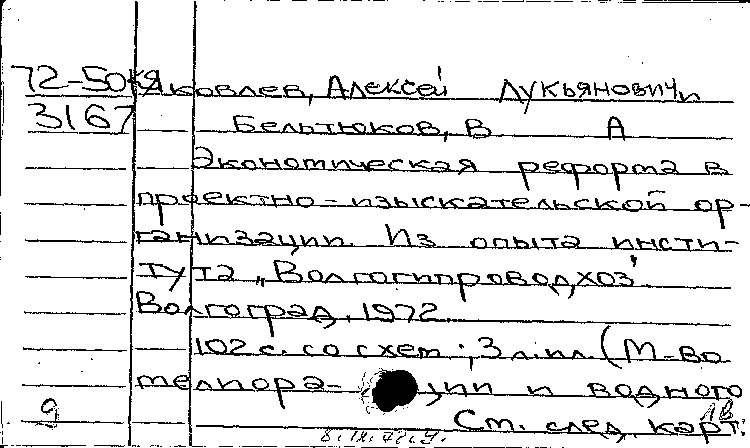 72-50кя Яковлев, Алексей Лукьянович и
3167 Бельтюков, В А
Экономическая реформа в
проектно-изыскательской ор-
ганизации. Из опыта инсти-
тута „Волгогипроводхоз".
Волгоград, 1972.
102 с. со схем.; 3 л. ил. (М-во
мелиора- ции и водного
9 См. след. карт.